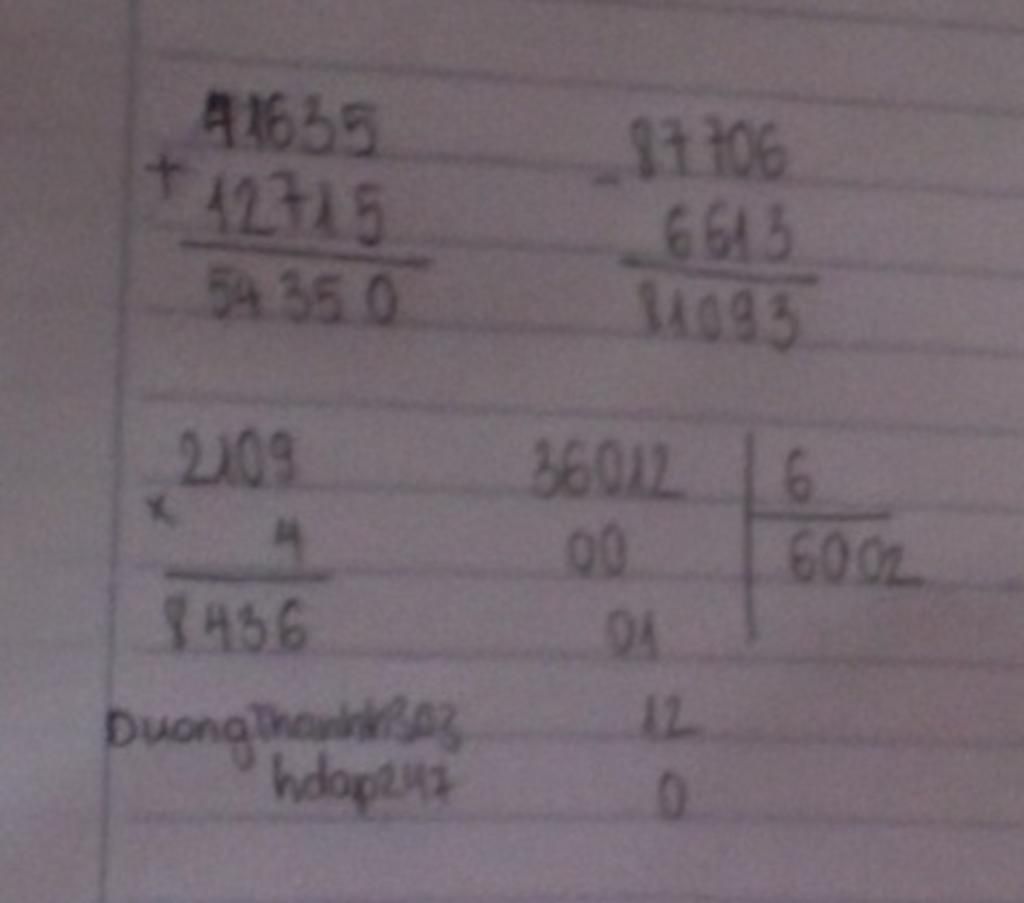 41635
+
12715
54350
- 87706
6613
81093
2109
x
4
8436
36012 6
00 6002
01
12
0
hdap247